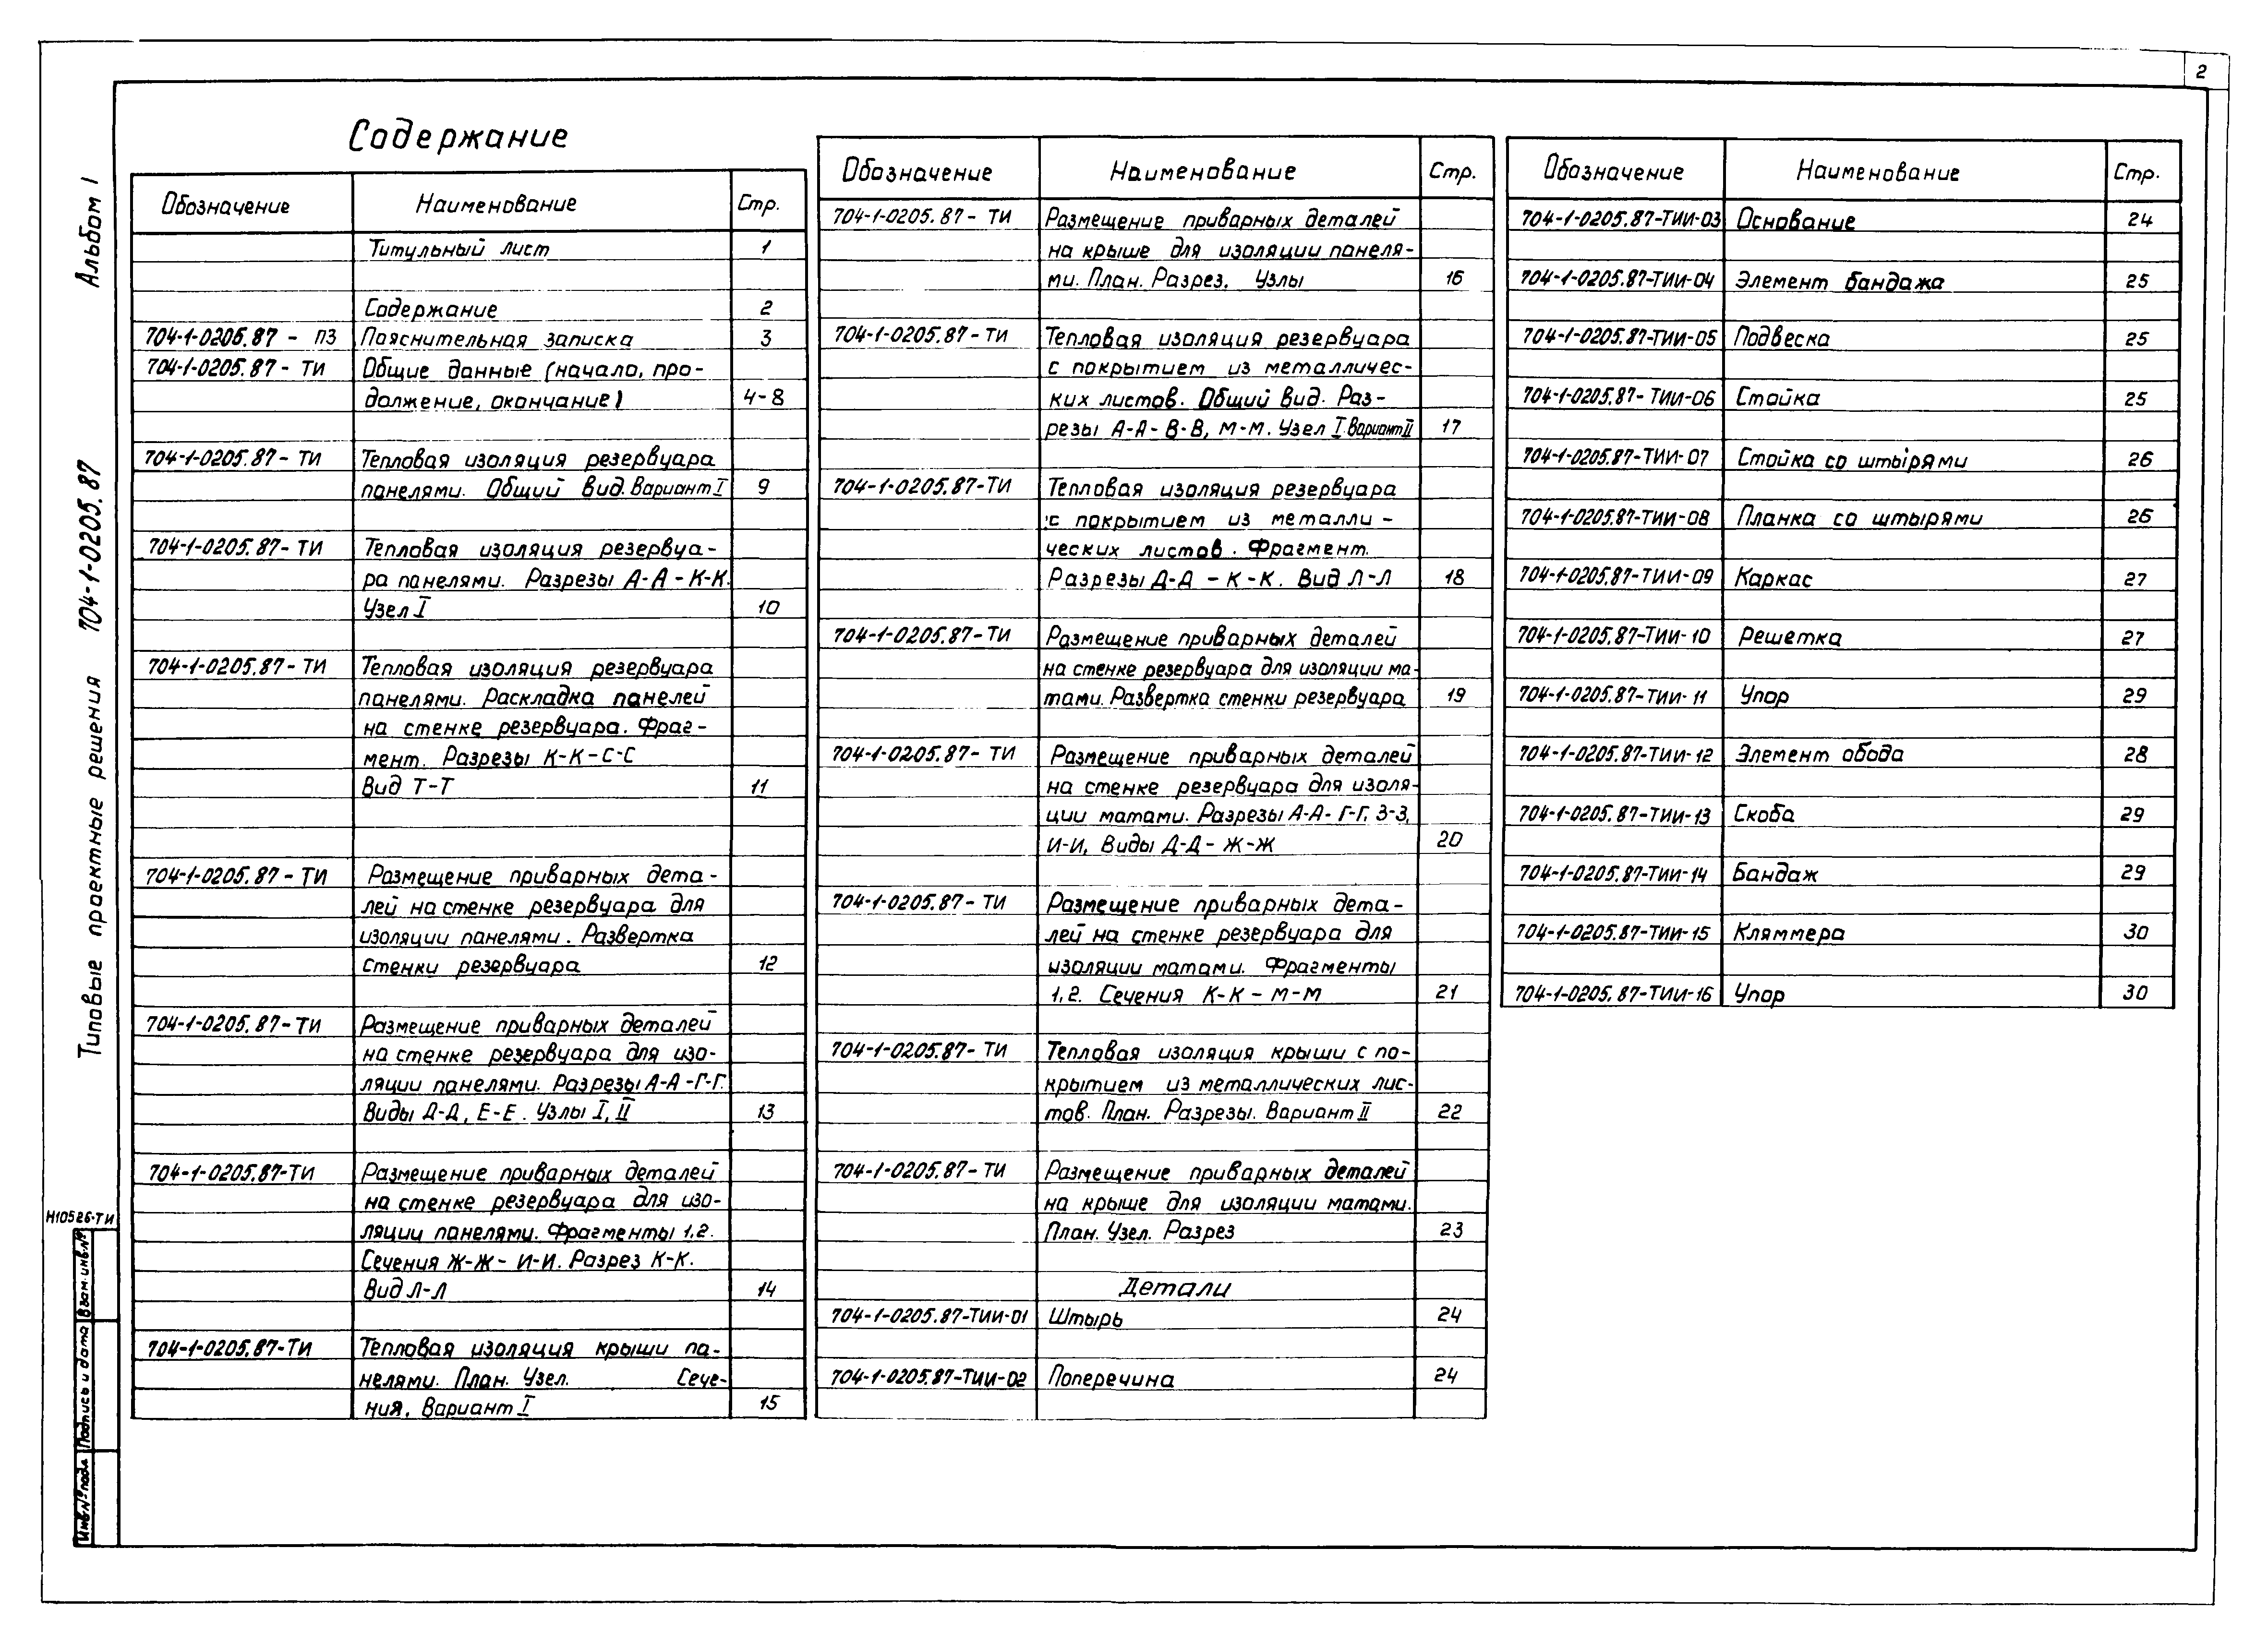 2
Содержание
Обозначение Наименование Стр.
Титульный лист 1
Содержание 2
704-1-0205.87 - ПЗ Пояснительная записка 3
704-1-0205.87 - ТИ Общие данные (начало, про-
должение, окончание) 4-8
704-1-0205.87- ТИ Тепловая изоляция резервуара
панелями. Общий вид. Вариант I 9
704-1-0205.87- ТИ Тепловая изоляция резервуа-
ра панелями. Разрезы А-А - К-К.
Узел I 10
704-1-0205.87- ТИ Тепловая изоляция резервуара
панелями. Раскладка панелей
на стенке резервуара. Фраг-
мент. Разрезы К-К-С-С
Вид Т-Т 11
704-1-0205.87 - ТИ Размещение приварных дета-
лей на стенке резервуара для
изоляции панелями. Развертка
стенки резервуара 12
704-1-0205.87-ТИ Размещение приварных деталей
на стенке резервуара для изо-
ляции панелями. Разрезы А-А-Г-Г.
Виды Д-Д, Е-Е. Узлы I, II 13
704-1-0205.87-ТИ Размещение приварных деталей
на стенке резервуара для изо-
ляции панелями. Фрагменты 1,2.
Сечения Ж-Ж- И-И. Разрез К-К.
Вид Л-Л 14
704-1-0205.87-ТИ Тепловая изоляция крыши па-
нелями. План. Узел. Сече-
ния, Вариант I 15
Обозначение Наименование Стр.
704-1-0205.87- ТИ Размещение приварных деталей
на крыше для изоляции панеля-
ми. План. Разрез. Узлы 16
704-1-0205.87- ТИ Тепловая изоляция резервуара
с покрытием из металличес-
ких листов. Общий вид. Раз-
резы А-А- В-В, М-М. Узел I Вариант II 17
704-1-0205.87-ТИ Тепловая изоляция резервуара
с покрытием из металли -
ческих листов. Фрагмент.
Разрезы Д-Д - К-К. Вид Л-Л 18
704-1-0205.87- ТИ Размещение приварных деталей
на стенке резервуара для изоляции ма-
тами. Развертка стенки резервуара 19
704-1-0205.87- ТИ Размещение приварных деталей
на стенке резервуара для изоля-
ции матами. Разрезы А-А- Г-Г, З-З,
И-И, Виды Д-Д- Ж-Ж 20
704-1-0205.87- ТИ Размещение приварных дета-
лей на стенке резервуара для
изоляции матами. Фрагменты
1,2. Сечения К-К - М-М 21
704-1-0205.87- ТИ Тепловая изоляция крыши с по-
крытием из металлических лис-
тов. План. Разрезы. Вариант II 22
704-1-0205.87- ТИ Размещение приварных деталей
на крыше для изоляции матами.
План. Узел. Разрез 23
Детали
704-1-0205.87-ТИИ-01 Штырь 24
704-1-0205.87-ТИИ-02 Поперечина 24
Обозначение Наименование Стр.
704-1-0205.87-ТИИ-03 Основание 24
704-1-0205.87-ТИИ-04 Элемент бандажа 25
704-1-0205.87-ТИИ-05 Подвеска 25
704-1-0205.87- ТИИ-06 Стойка 25
704-1-0205.87-ТИИ-07 Стойка со штырями 26
704-1-0205.87-ТИИ-08 Планка со штырями 26
704-1-0205.87-ТИИ-09 Каркас 27
704-1-0205.87-ТИИ-10 Решетка 27
704-1-0205.87-ТИИ-11 Упор 29
704-1-0205.87-ТИИ-12 Элемент обода 28
704-1-0205.87-ТИИ-13 Скоба 29
704-1-0205.87-ТИИ-14 Бандаж 29
704-1-0205.87-ТИИ-15 Кляммера 30
704-1-0205.87-ТИИ-16 Упор 30
Типовые проектные решения 704-1-0205.87 Альбом I
Н10526-ТИ
Инв.№подл. Подпись и дата Взам.инв.№